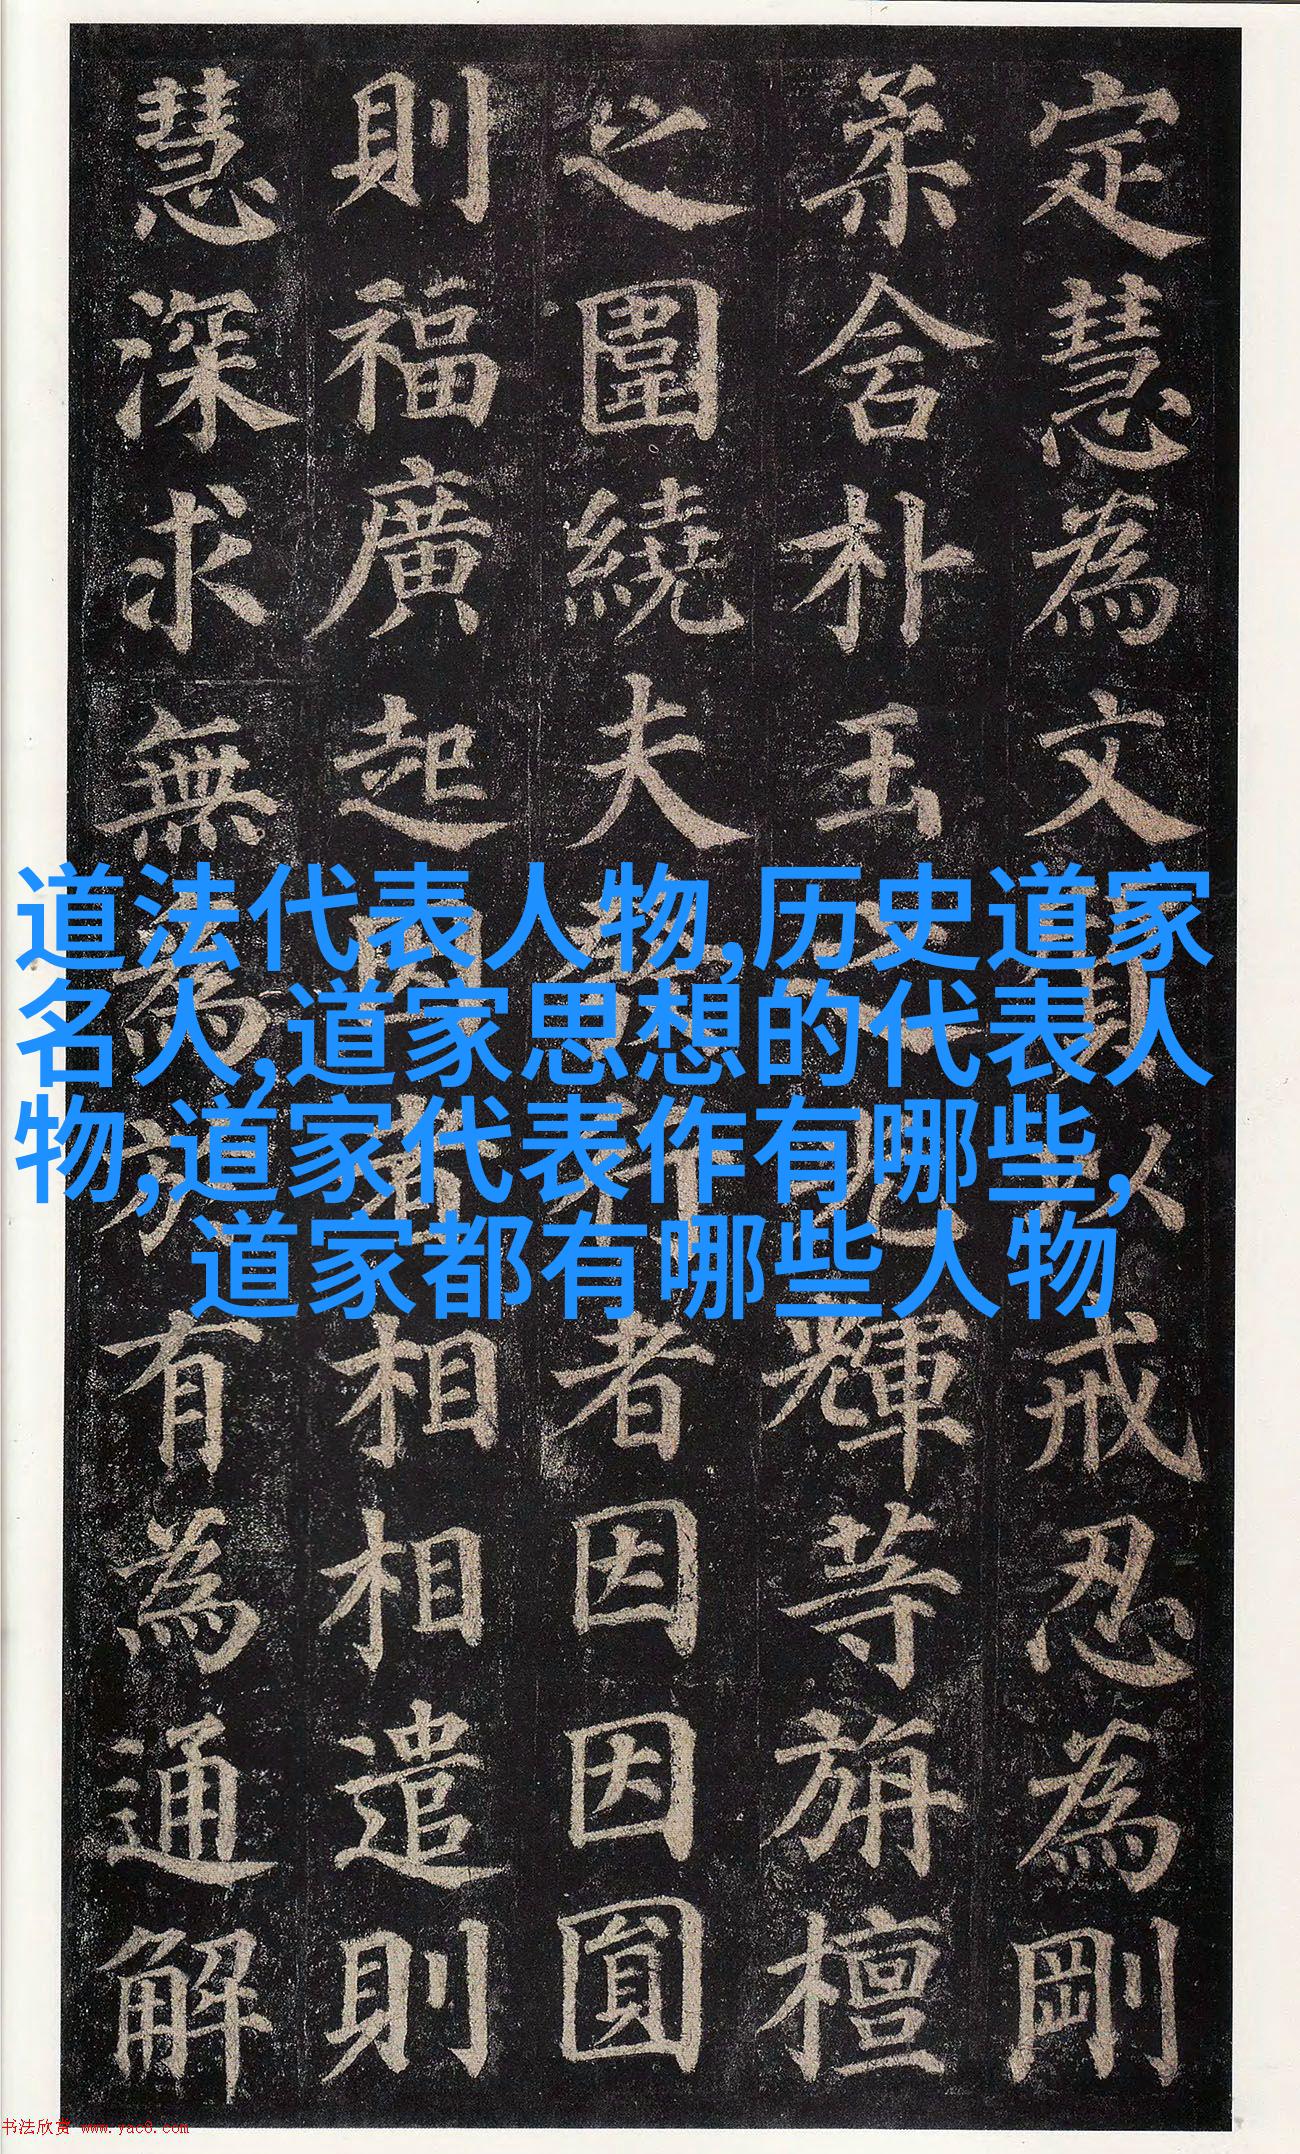 定慧為文以戒忍為剛
柔含朴玉之光輝等旃檀
之圍繞夫行者因因圓
則福廣起因相相遣則
慧深求無為於有為通解
道法代表人物,历史道家
名人,道家思想的代表人
物,道家代表作有哪些,
道家都有哪些人物
书法欣赏 www.yac8.com